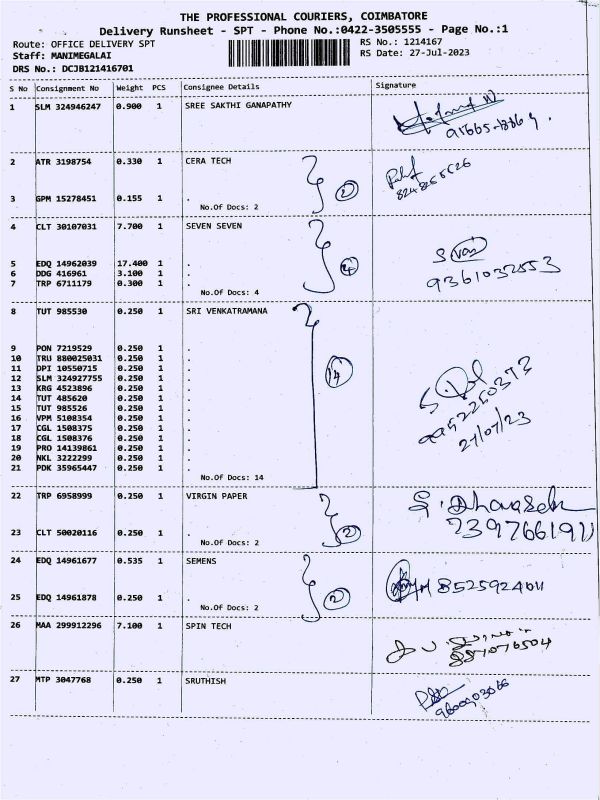 THE PROFESSIONAL COURIERS, COIMBATORE
Delivery Runsheet - SPT - Phone No.:0422-3505555 - Page No.:1
Route: OFFICE DELIVERY SPT
RS No.: 1214167
Staff: MANIMEGALAI
RS Date: 27-Jul-2023
DRS No.: DCJB121416701
S No Consignment No Weight PCS Consignee Details Signature
1 SLM 324946247 0.900 1 SREE SAKTHI GANAPATHY
2 ATR 3198754 0.330 1 CERA TECH
2
3 GPM 15278451 0.155 1 .
No.Of Docs: 2
4 CLT 30107031 7.700 1 SEVEN SEVEN
5 EDQ 14962039 17.400 1 .
4
6 DDG 416961 3.100 1 .
7 TRP 6711179 0.300 1 .
9361032553
No.Of Docs: 4
8 TUT 985530 0.250 1 SRI VENKATRAMANA
9 PON 7219529 0.250 1 .
10 TRU 880025031 0.250 1 .
11 DPI 10550715 0.250 1 .
14
12 SLM 324927755 0.250 1 .
13 KRG 4523896 0.250 1 .
14 TUT 485620 0.250 1 .
15 TUT 985526 0.250 1 .
16 VPM 5108354 0.250 1 .
17 CGL 1508375 0.250 1 .
27/07/23
18 CGL 1508376 0.250 1 .
19 PRO 14139861 0.250 1 .
20 NKL 3222299 0.250 1 .
21 PDK 35965447 0.250 1 .
No.Of Docs: 14
22 TRP 6958999 0.250 1 VIRGIN PAPER
23 CLT 50020116 0.250 1 .
2
No.Of Docs: 2
24 EDQ 14961677 0.535 1 SEMENS
25 EDQ 14961878 0.250 1 .
2
No.Of Docs: 2
26 MAA 299912296 7.100 1 SPIN TECH
27 MTP 3047768 0.250 1 SRUTHISH